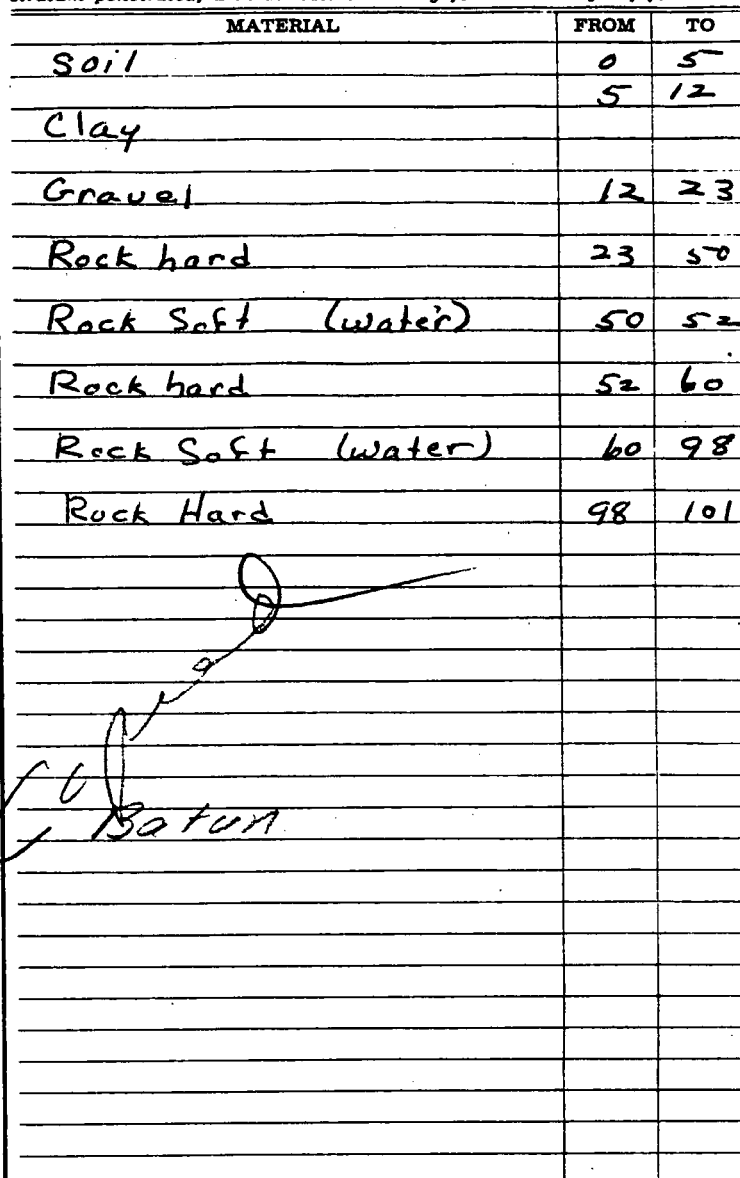 MATERIAL FROM TO
Soil 0 5
5 12
Clay
Gravel 12 23
Rock hard 23 50
Rock Soft (water) 50 52
Rock hard 52 60
Rock Soft (water) 60 98
Rock Hard 98 101